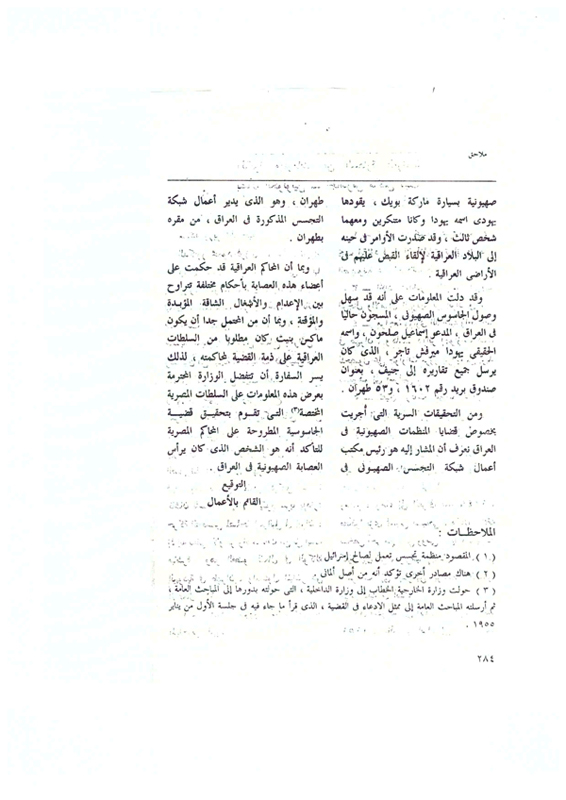 ملاحق
صهيونية بسيارة ماركة بويك ، يقودها
يهودى اسمه يهودا وكانا متنكرين ومعهما
شخص ثالث ، وقد صدرت الأوامر فى حينه
إلى البلاد العراقية لإلقاء القبض عليهم فى
الأراضى العراقية .
وقد دلت المعلومات على أنه قد سهل
وصول الجاسوس الصهيونى ، المسجون حاليًا
فى العراق ، المدعو إسماعيل صلحون ، واسمه
الحقيقى يهودا ميرفش تاجر ، الذى كان
يرسل جميع تقاريره إلى جنيف ، بعنوان
صندوق بريد رقم ١٦٠٢ ، و٥٣ طهران .
ومن التحقيقات السرية التى أجريت
بخصوص قضايا المنظمات الصهيونية فى
العراق نعرف أن المشار إليه هو رئيس مكتب
أعمال شبكة التجسس الصهيونى فى
طهران ، وهو الذى يدير أعمال شبكة
التجسس المذكورة فى العراق ، من مقره
بطهران .
وبما أن المحاكم العراقية قد حكمت على
أعضاء هذه العصابة بأحكام مختلفة تتراوح
بين الإعدام والأشغال الشاقة المؤبدة
والمؤقتة ، وبما أن من المحتمل جدا أن يكون
ماكس بنيت كان مطلوبا من السلطات
العراقية على ذمة القضية لمحاكمته ، لذلك
يسر السفارة أن تتفضل الوزارة المحترمة
بعرض هذه المعلومات على السلطات المصرية
المختصة(٣) التى تقوم بتحقيق قضية
الجاسوسية المطروحة على المحاكم المصرية
للتأكد أنه هو الشخص الذى كان يرأس
العصابة الصهيونية فى العراق .
التوقيع
القائم بالأعمال
الملاحظات :
( ١ ) المقصود منظمة تجسس تعمل لصالح إسرائيل
( ٢ ) هناك مصادر أخرى تؤكد أنه من أصل ألمانى
( ٣ ) حولت وزارة الخارجية الخطاب إلى وزارة الداخلية ، التى حولته بدورها إلى المباحث العامة ،
ثم أرسلته المباحث العامة إلى ممثل الادعاء فى القضية ، الذى قرأ ما جاء فيه فى جلسة الأول من يناير
١٩٥٥ .
٢٨٤